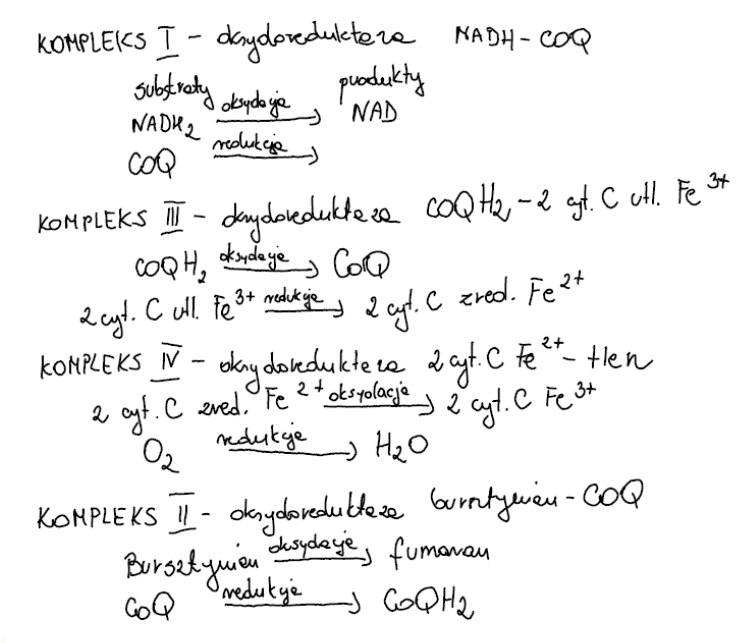 KOMPLEKS I - oksydoreduktaza NADH-COQ
substraty produkty
NADH2 oksydacja → NAD
COQ redukcja →
KOMPLEKS III - oksydoreduktaza COQH2 - 2 cyt. C utl. Fe3+
COQH2 oksydacja → CoQ
2 cyt. C utl. Fe3+ redukcja → 2 cyt. C zred. Fe2+
KOMPLEKS IV - oksydoreduktaza 2 cyt. C Fe2+ - tlen
2 cyt. C zred. Fe2+ oksydacja → 2 cyt. C Fe3+
O2 redukcja → H2O
KOMPLEKS II - oksydoreduktaza bursztynian - COQ
Bursztynian oksydacja → fumaran
CoQ redukcja → CoQH2